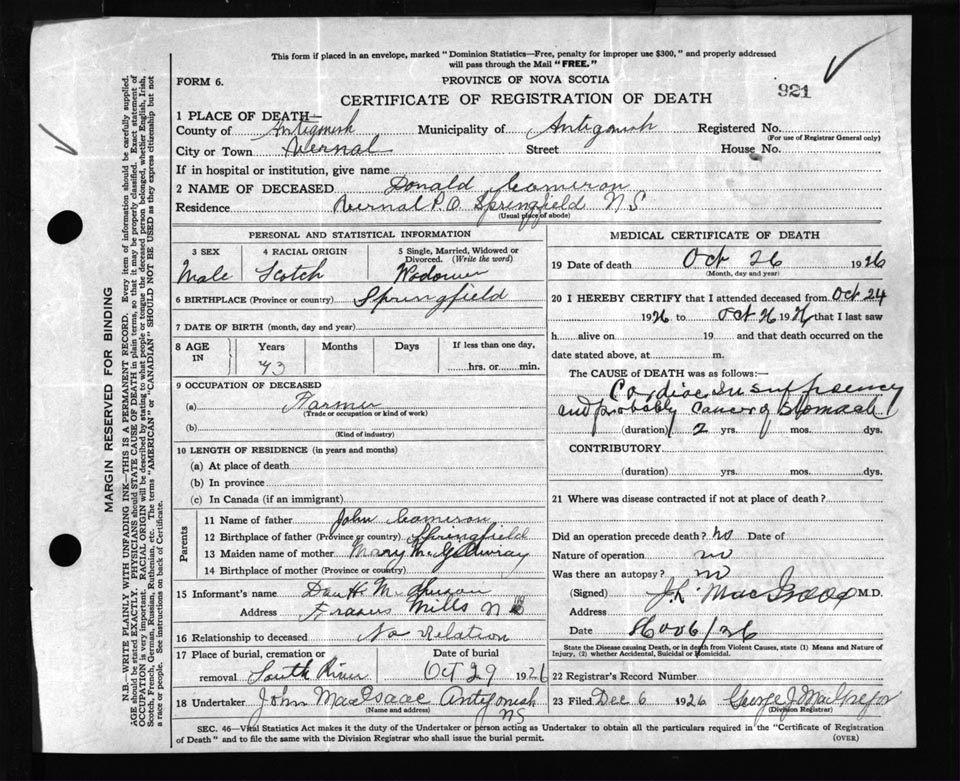 This form if placed in an envelope, marked "Dominion Statistics—Free, penalty for improper use $300," and properly addressed
will pass through the Mail "FREE."
FORM 6.
PROVINCE OF NOVA SCOTIA
921
CERTIFICATE OF REGISTRATION OF DEATH
1 PLACE OF DEATH—
County of Antigonish Municipality of Antigonish Registered No.
(For use of Registrar General only)
City or Town Vernal Street House No.
If in hospital or institution, give name
2 NAME OF DECEASED Donald Cameron
Residence Vernal P.O. Springfield N S
(Usual place of abode)
PERSONAL AND STATISTICAL INFORMATION
3 SEX 4 RACIAL ORIGIN 5 Single, Married, Widowed or Divorced. (Write the word)
Male Scotch Widower
6 BIRTHPLACE (Province or country) Springfield
7 DATE OF BIRTH (month, day and year)
8 AGE IN Years Months Days If less than one day,
73 hrs. or min.
9 OCCUPATION OF DECEASED
(a) Farmer
(Trade or occupation or kind of work)
(b)
(Kind of industry)
10 LENGTH OF RESIDENCE (in years and months)
(a) At place of death
(b) In province
(c) In Canada (if an immigrant)
Parents
11 Name of father John Cameron
12 Birthplace of father (Province or country) Springfield
13 Maiden name of mother Mary McGillivray
14 Birthplace of mother (Province or country)
15 Informant's name Dan H.
Address Frasers Mills N S
16 Relationship to deceased No Relation
17 Place of burial, cremation or removal South River Date of burial Oct 29 1926
18 Undertaker John MacIsaac Antigonish
(Name and address) NS
MEDICAL CERTIFICATE OF DEATH
19 Date of death Oct 26 1926
(Month, day and year)
20 I HEREBY CERTIFY that I attended deceased from Oct 24
1926 to Oct 26 1926 that I last saw
h alive on 19 and that death occurred on
date stated above, at m.
The CAUSE of DEATH was as follows:—
Cardiac Insufficiency
and probably Cancer of Stomach
(duration) 2 yrs. mos. dys.
CONTRIBUTORY
(duration) yrs. mos. dys.
21 Where was disease contracted if not at place of death?
Did an operation precede death? no Date of
Nature of operation no
Was there an autopsy? no
(Signed) M.D.
Address
Date
State the Disease causing Death, or in death from Violent Causes, state (1) Means and Nature of
Injury, (2) whether Accidental, Suicidal or Homicidal.
22 Registrar's Record Number
23 Filed Dec 6 1926 George J. MacGregor
(Division Registrar)
SEC. 46—Vital Statistics Act makes it the duty of the Undertaker or person acting as Undertaker to obtain all the particulars required in the "Certificate of Registration
of Death" and to file the same with the Division Registrar who shall issue the burial permit. (OVER)
MARGIN RESERVED FOR BINDING
N.B.—WRITE PLAINLY WITH UNFADING INK—THIS IS A PERMANENT RECORD. Every item of information should be carefully supplied.
AGE should be stated EXACTLY. PHYSICIANS should STATE CAUSE OF DEATH in plain terms, so that it may be properly classified. Exact statement of
OCCUPATION is very important. RACIAL ORIGIN will be described by stating to what people or tongue the deceased person belonged, whether English, Irish,
Scotch, French, German, Russian, Ruthenian, etc. The terms "AMERICAN" or "CANADIAN" SHOULD NOT BE USED as they express citizenship but not
a race or people. See instructions on back of Certificate.